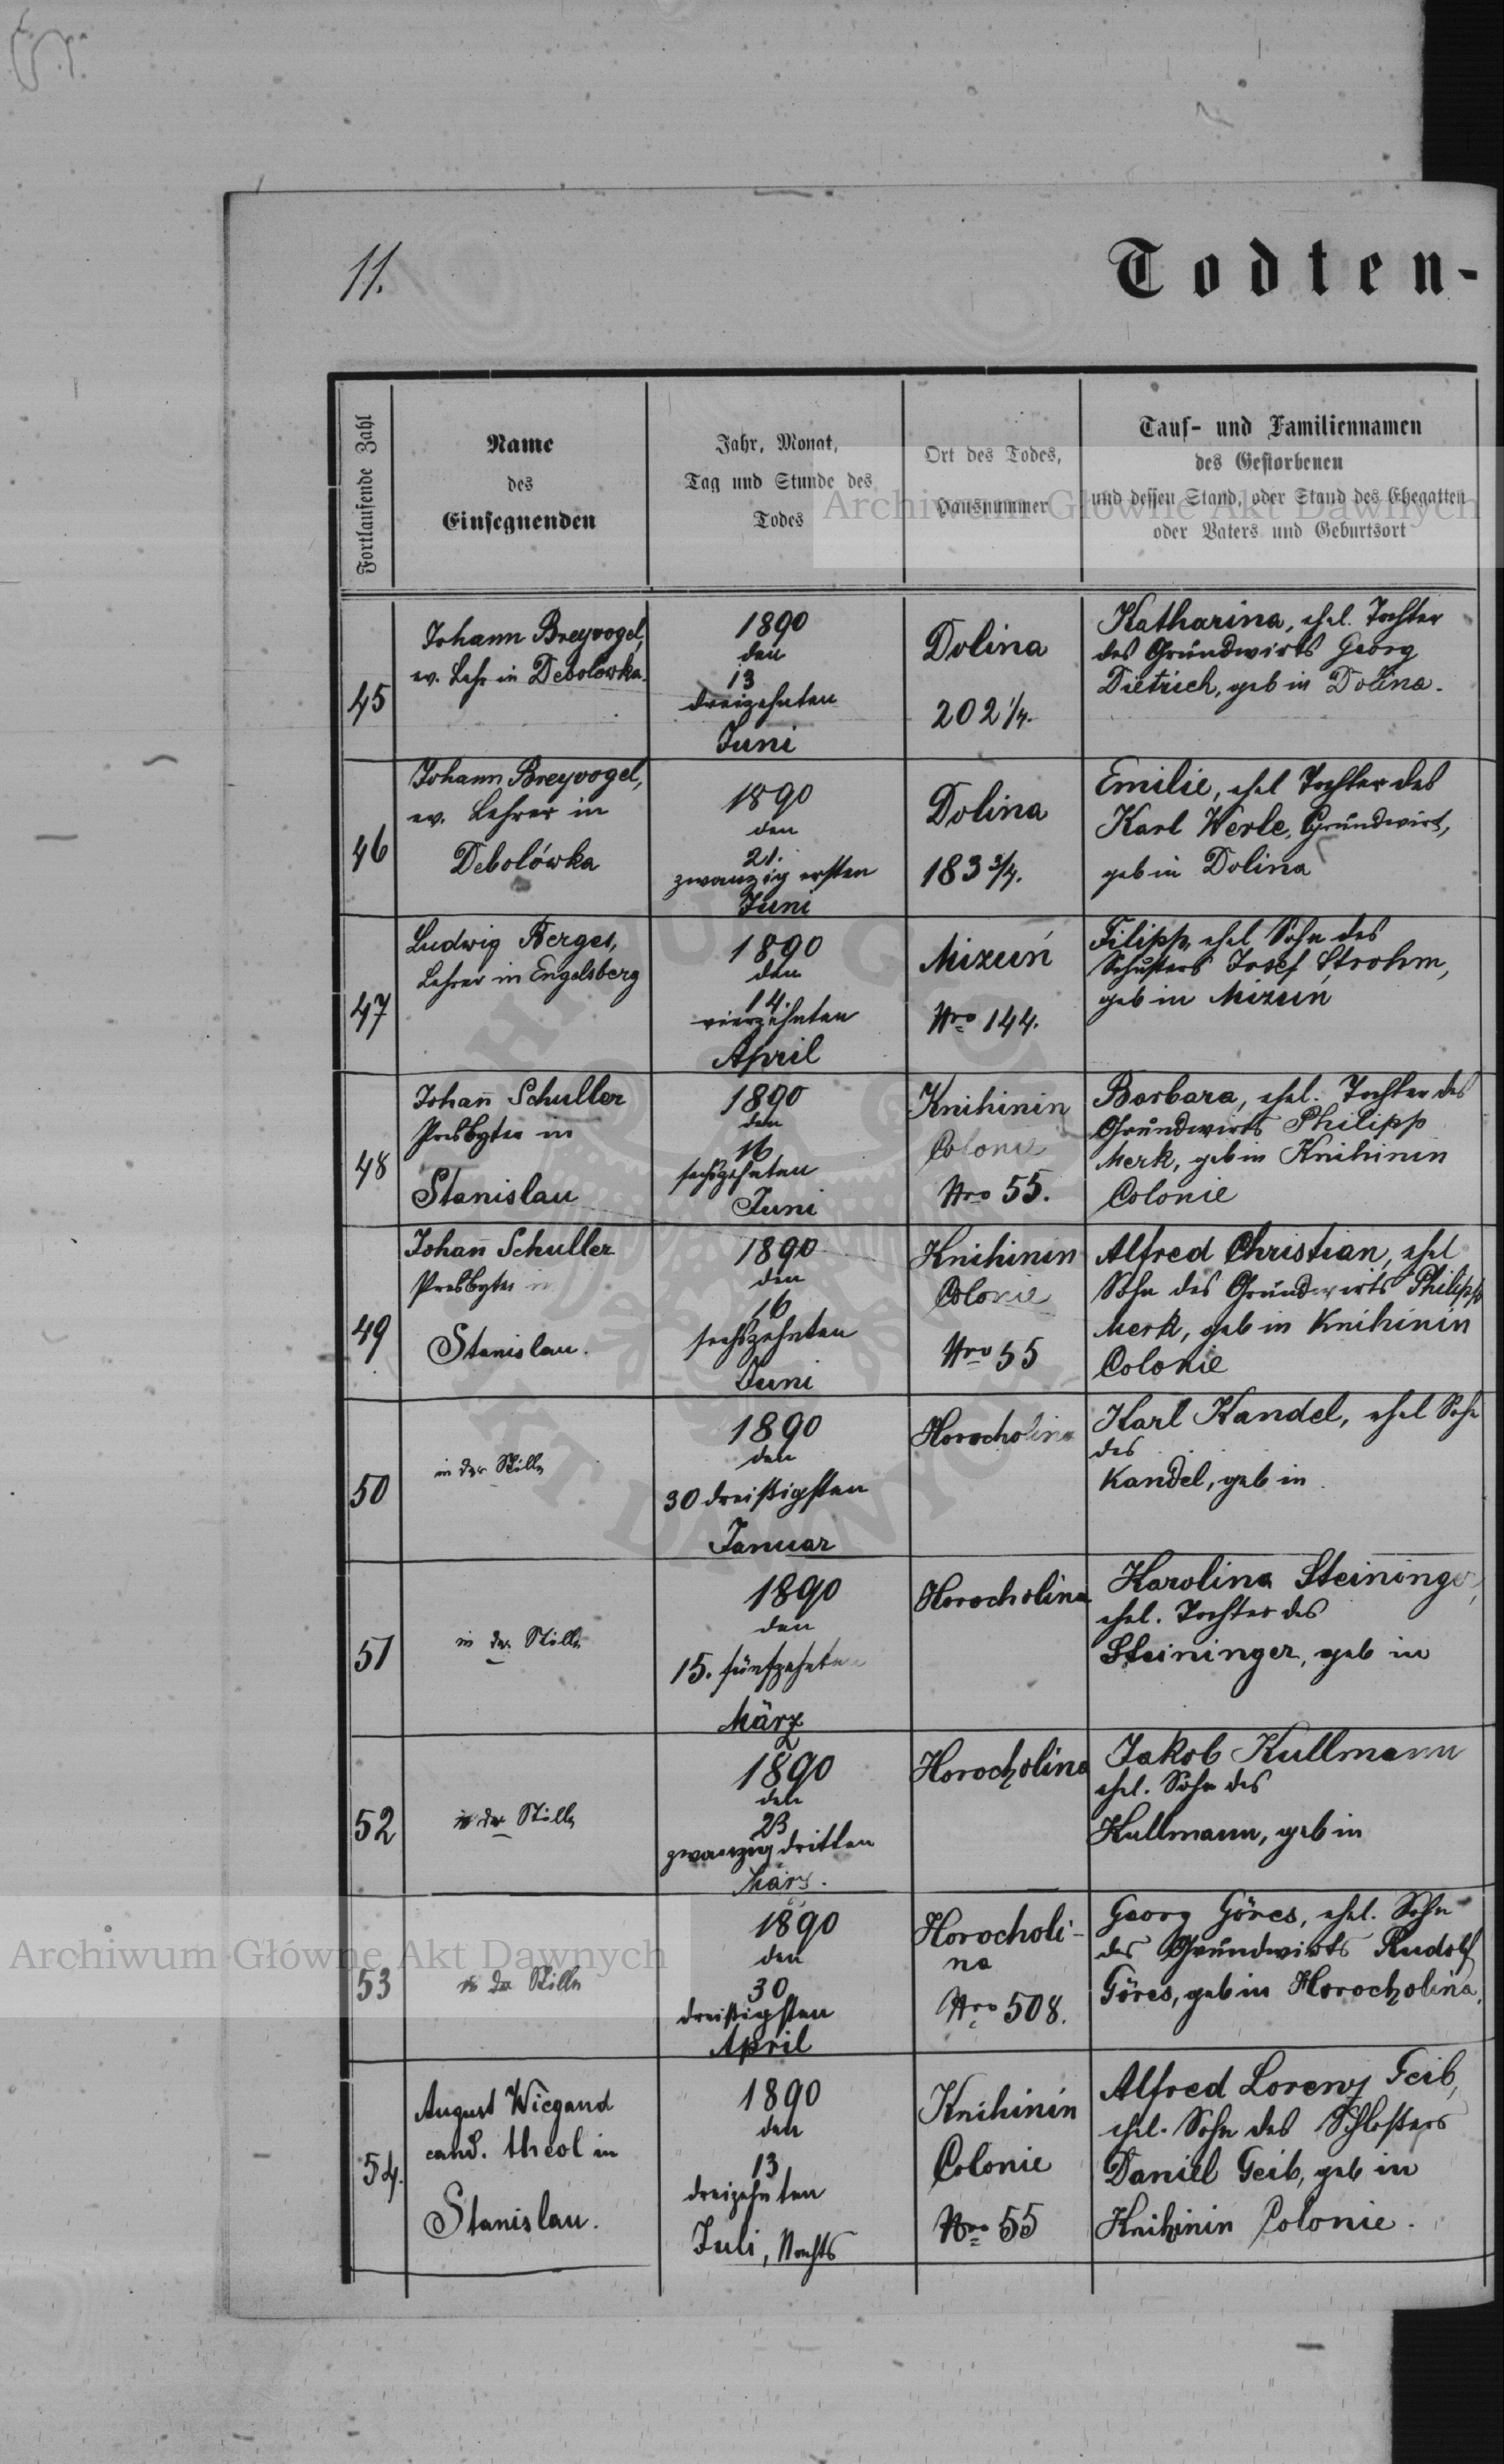 11.
Todten-
Fortlaufende Zahl
Name
des
Einsegnenden
Jahr, Monat,
Tag und Stunde des
Todes
Ort des Todes,
Hausnummer
Tauf- und Familiennamen
des Gestorbenen
und dessen Stand, oder Stand des Ehegatten
oder Vaters und Geburtsort
Archiwum Główne Akt Dawnych
45
Johann Breyvogel,
ev. Lehr in Debolowka.
1890
den
13
dreizehnten
Juni
Dolina
202 1/4.
Katharina, ehel. Tochter
des Grundwirts Georg
Dietrich, geb in Dolina.
46
Johann Breyvogel,
ev. Lehrer in
Debolówka
1890
den
21.
zwanzig ersten
Juni
Dolina
183 3/4.
Emilie, ehel Tochter des
Karl Werle, Grundwirt,
geb in Dolina
47
Ludwig Berges,
Lehrer in Engelsberg
1890
den
14.
vierzehnten
April
Mizuń
Nro 144.
Filipp, ehel Sohn des
Schusters Josef Strohm,
geb in Mizuń
48
Johan̄ Schuller
Presbyter in
Stanislau
1890
den
16
sechszehnten
Juni
Knihinin
Colonie
Nro 55.
Barbara, ehel. Tochter des
Grundwirts Philipp
Merk, geb in Knihinin
Colonie
49
Johan̄ Schuller
Presbyter in
Stanislau.
1890
den
16
sechszehnten
Juni
Knihinin
Colonie
Nro 55
Alfred Christian, ehel
Sohn des Grundwirts Philipp
Merk, geb in Knihinin
Colonie
50
in der Stille
1890
den
30 dreißigsten
Januar
Horocholina
Karl Kandel, ehel Sohn
des
Kandel, geb in
51
in der Stille
1890
den
15. fünfzehnten
März
Horocholina
Karolina Steininger,
ehel. Tochter des
Steininger, geb in
52
in der Stille
1890
den
23
zwanzig dritten
März.
Horocholina
Jakob Kullmann
ehel. Sohn des
Kullmann, geb in
53
in der Stille
1890
den
30
dreißigsten
April
Horocholi-
na
Nro 508.
Georg Göres, ehel. Sohn
des Grundwirts Rudolf
Göres, geb in Horocholina.
Archiwum Główne Akt Dawnych
54.
August Wiegand
cand. theol in
Stanislau.
1890
den
13
dreizehnten
Juli, Nachts
Knihinin
Colonie
Nro 55
Alfred Lorenz Geib,
ehel. Sohn des Schloßers
Daniel Geib, geb in
Knihinin Colonie.